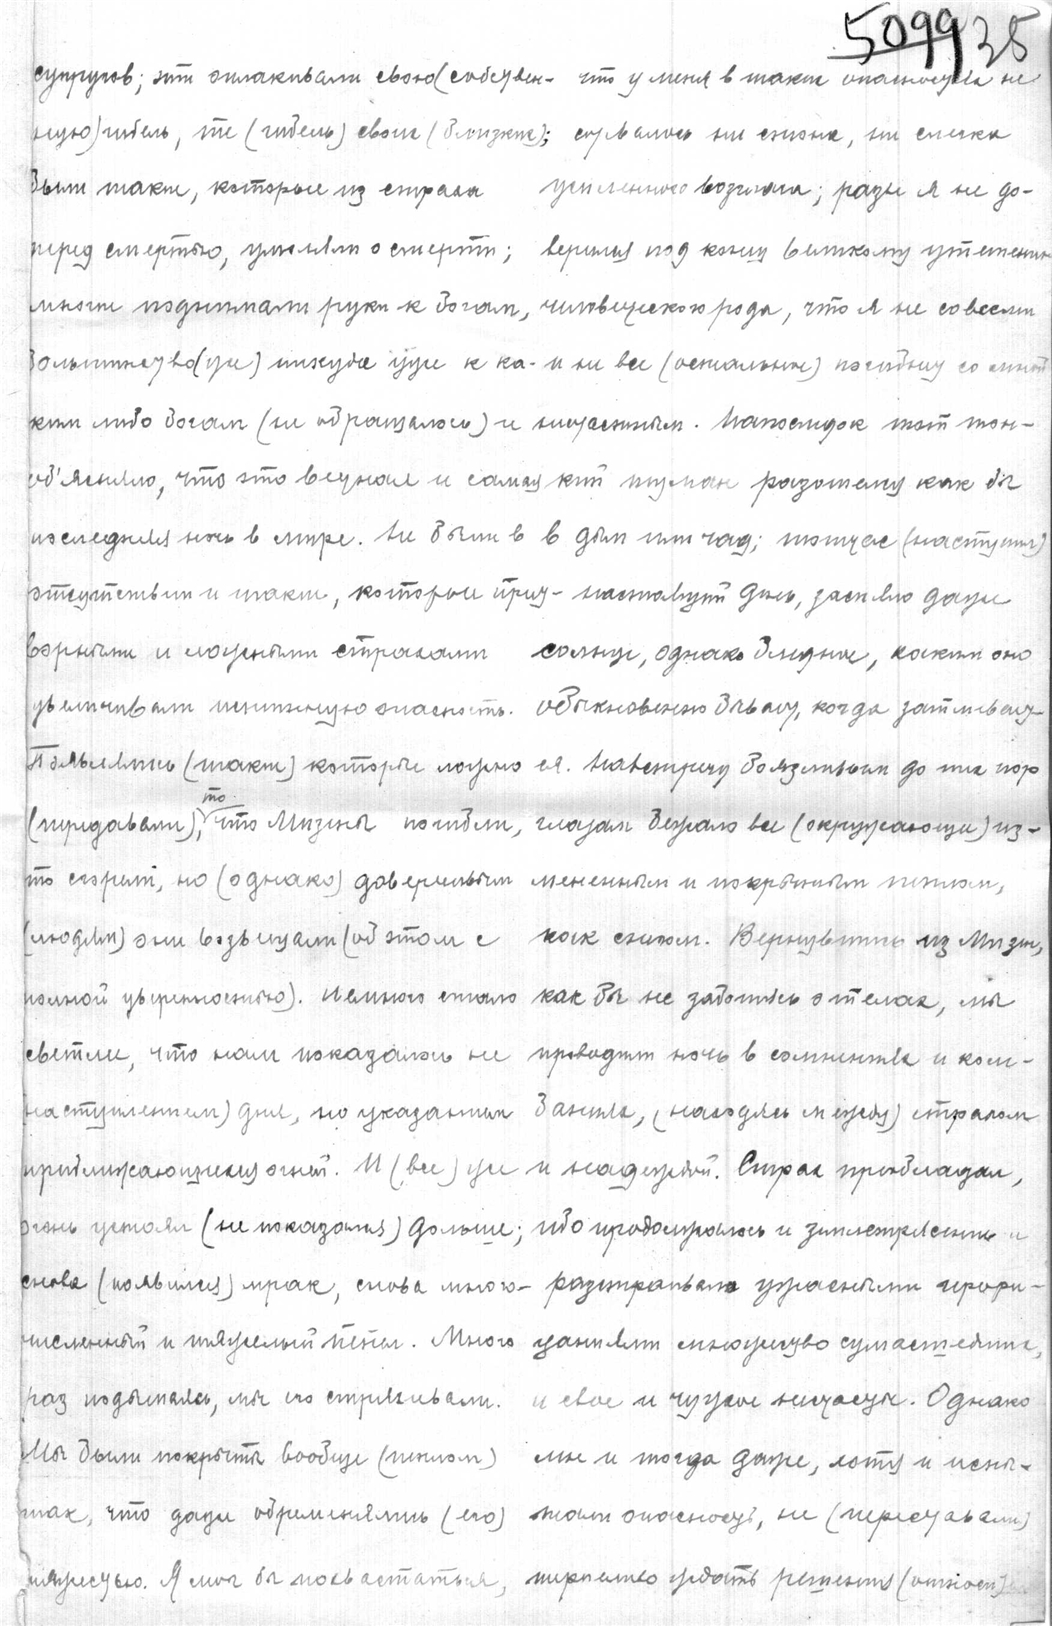 5099 35
супругов; эти оплакивали свою (собствен-
ную) гибель, те (гибель) своих (близких);
были такие, которые из страха
перед смертью, умоляли о смерти;
многие поднимали руки к богам,
большинство (же) никуда уже к ка-
ким либо богам (не обращалось) и
об'ясняло, что это вечная и самая
последняя ночь в мире. Не были в
отсутствии и такие, которые приу-
ложными страхами
увеличивали истинную опасность.
Появлялись (такие) которые ложно
(передавали), то что Мизены погибли,
то сгорели, но (однако) доверчивым
(людям) они возвещали (об этом с
полной уверенностью). Немного стало
светлее, что нам показалось не
(наступлением) дня, но указанием
приближающихся огней. И (все) же
огонь устоял (не показался) дольше;
снова (появился) мрак, снова много-
численный и тяжелый пепел. Много
раз подымаясь, мы его стряхивали.
Мы были покрыты вообще (пеплом)
так, что даже обременялись (его)
тяжестью. Я мог бы похвастаться,
что у меня в таких опасностях не
сорвалось ни стона, ни слека
усиленного возгласа; разве я не до-
верился под конец великому утешению
человеческого рода, что я не совсем
и не все (остальные) погибнут со мной
несчастным. Напоследок тот тон-
кий туман разошелся как бы
в дым или чад; тотчас (наступил)
настоящий день, засияло даже
солнце, однако бледное, каким оно
обыкновенно бывает, когда затмевает-
ся. Навстречу боязливым до тех пор
глазам бежало все (окружающее) из-
мененным и покрытым пеплом,
как снегом. Вернувшись из Мизен,
как бы не заботясь о телах, мы
проводим ночь в сомнениях и коле-
баниях, (находясь между) страхом
и надеждой. Страх преобладал,
ибо продолжалось и землетрясение и
ужасными прори-
цаниями множество сумасшедших,
и свое и чужое несчастье. Однако
мне и тогда даже, хотя и испы-
тали опасность, не (переставали)
терпеливо ждать